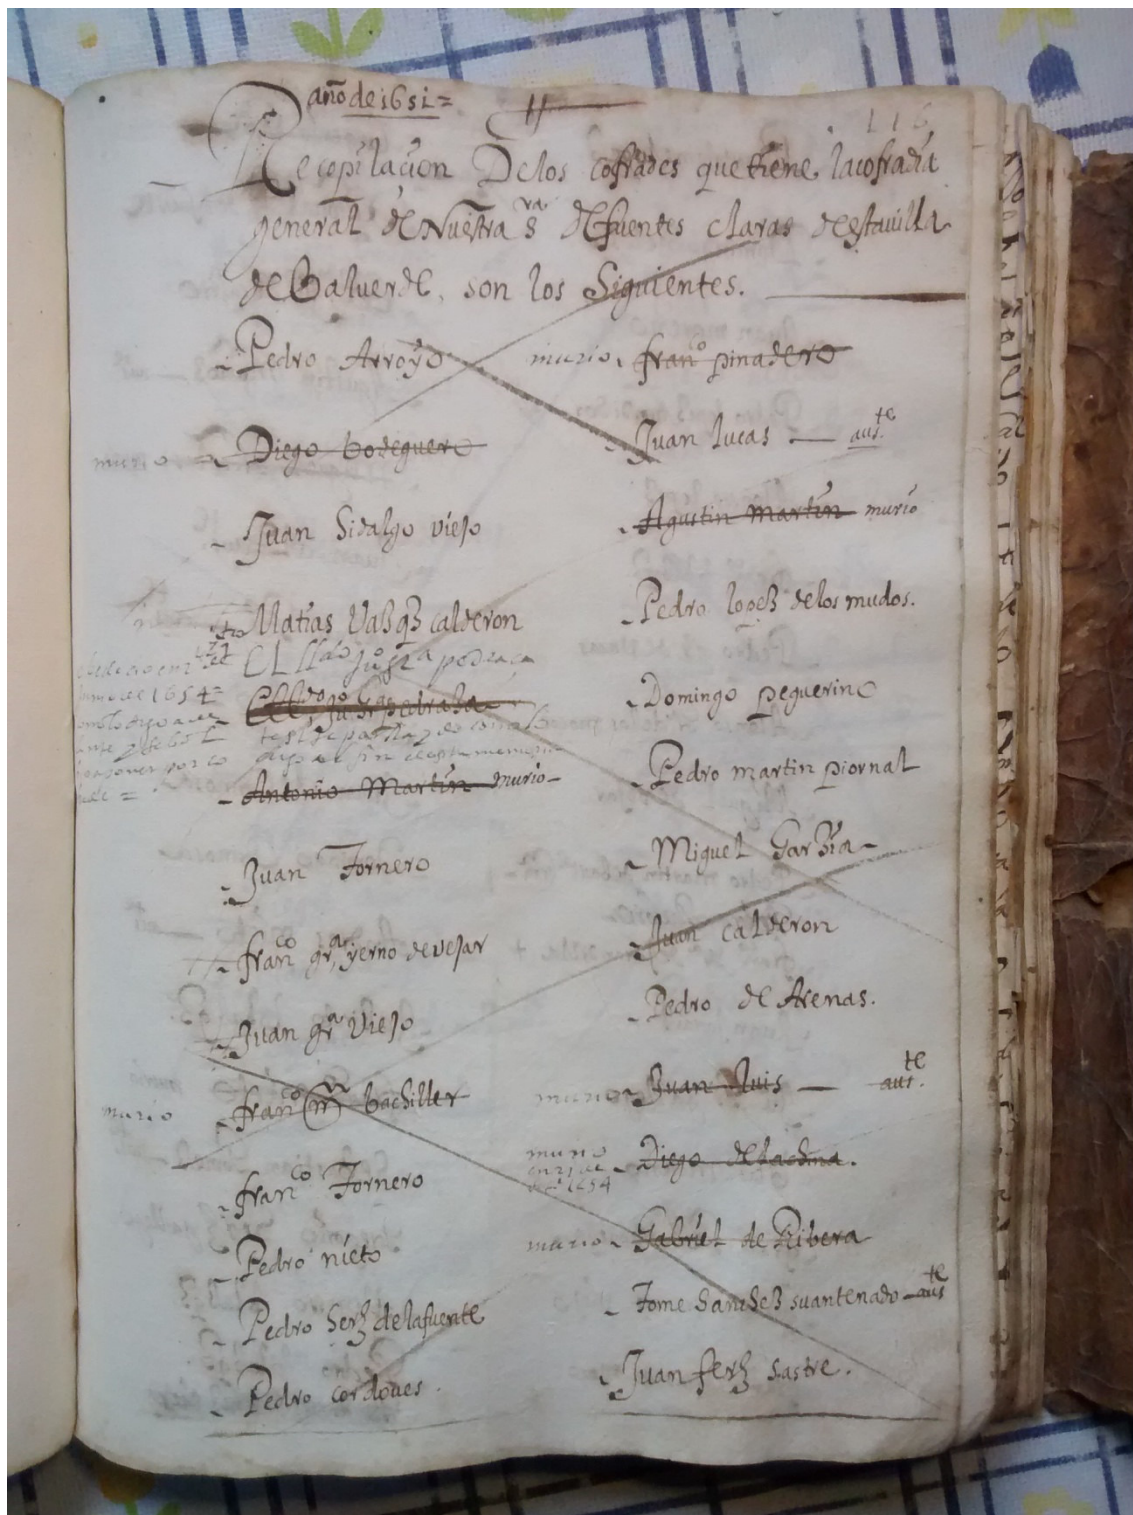 año de 1651=
116
Recopilacion De los cofrades que tiene la cofradia
general de Nuestra Sra de fuentes claras desta uilla
de Balverde, son los Siguientes.
Pedro Arroyo
murio Diego bodeguero
Juan Hidalgo viejo
Matias Vasqz calderon
El Lldo Juo gra pedraça
de 1654=
Antonio Martin murio
Juan Fornero
franco gra yerno de vejar
Juan gra Viejo
murio franco mrn bachiller
franco Fornero
Pedro nieto
Pedro herz de la fuente
Pedro cordoves
murio franco pinadero
Juan lucas — auste
Agustin Martin murio
Pedro lopez de los mudos.
Domingo peguerino
Pedro martin piornal
Miguel Garzia
Juan calderon
Pedro de Arenas.
murio Juan luis — auste
murio
1654
Diego de
murio Gabriel de Ribera
Tome Sanchez su antenado auste
Juan ferz sastre.